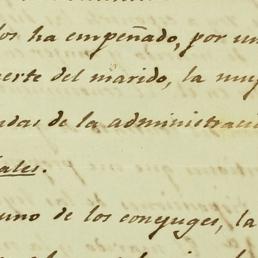 los ha empeñado, por un
erte del marido, la muj
das de la administraci
ales.
uno de los conyuges, la